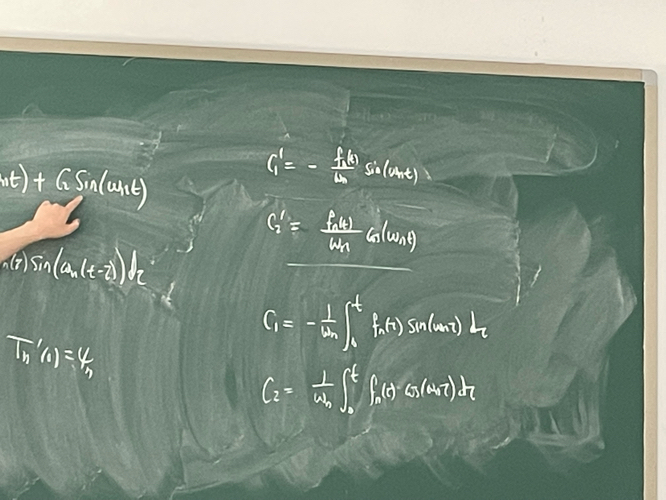 nt) + C₂ Sin(ωnt)
n(τ) sin(ωn(t-τ)) dτ
Tn'(0) = ψn
C₁' = - fn(t)/ωn sin(ωnt)
C₂' = fn(t)/ωn cos(ωnt)
C₁ = - 1/ωn ∫₀ᵗ fn(τ) sin(ωnτ) dτ
C₂ = 1/ωn ∫₀ᵗ fn(τ) cos(ωnτ) dτ